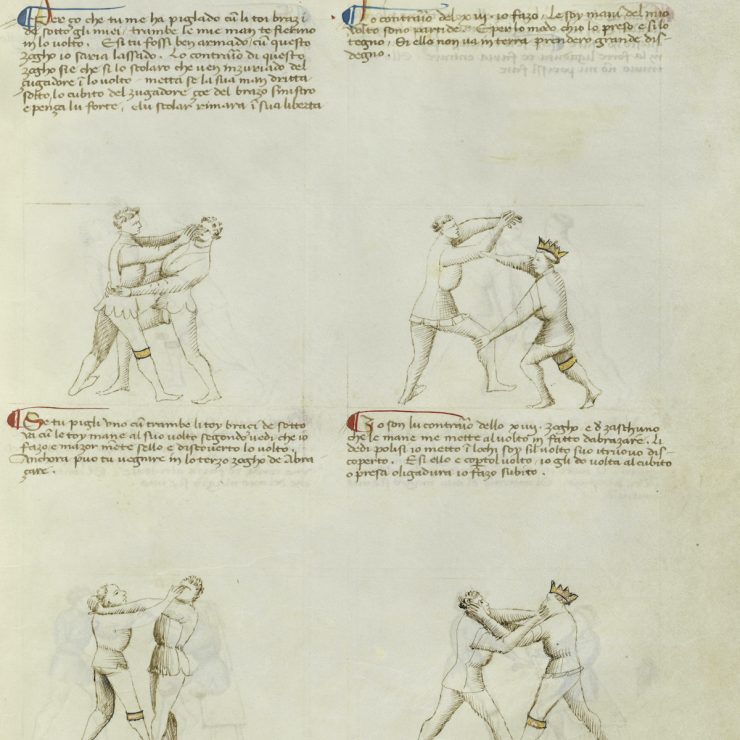 Per ço che tu me ha pigliado cū li toi brazi
de sotto gli miei, trambe le mie man te fierino
in lo volto. E si tu fossi ben armado, cū questo
zogho io saria lassado. Lo contrario di questo
zogho si è che si lo scolaro che ven inzuriado del
zugadore ī lo volto metta se la sua man dritta
sotto lo cubito del zugadore çoe del brazo sinistro
e penza lu forte, e lu scolar rimara ī sua liberta
Io contrario del xiii. io fazo. Le soy mani del mio
volto sono partide. E per lo modo ch'io lo preso e si lo
tegno, Si ello non va in terra prenderò grande dis
degno.
Se tu pigli uno cū trambe li toy braçi de sotto
va cū le toy mane al suo volto segondo vedi che io
fazo e mazor mente se llo e discoverto lo volto.
Anchora puo tu vegnire in lo terzo zogho de Abra
çare.
Io son lu contrario dello xiiii. zogho e d zaschuno
che le mane me mette al volto in fatto d'abrazare. Li
dedi polisi io metto ī lochi soy si l volto suo i trovo dis
coperto. E si ello e coptol volto, io gli do volta al cubito
o presa o ligadura io fazo subito.